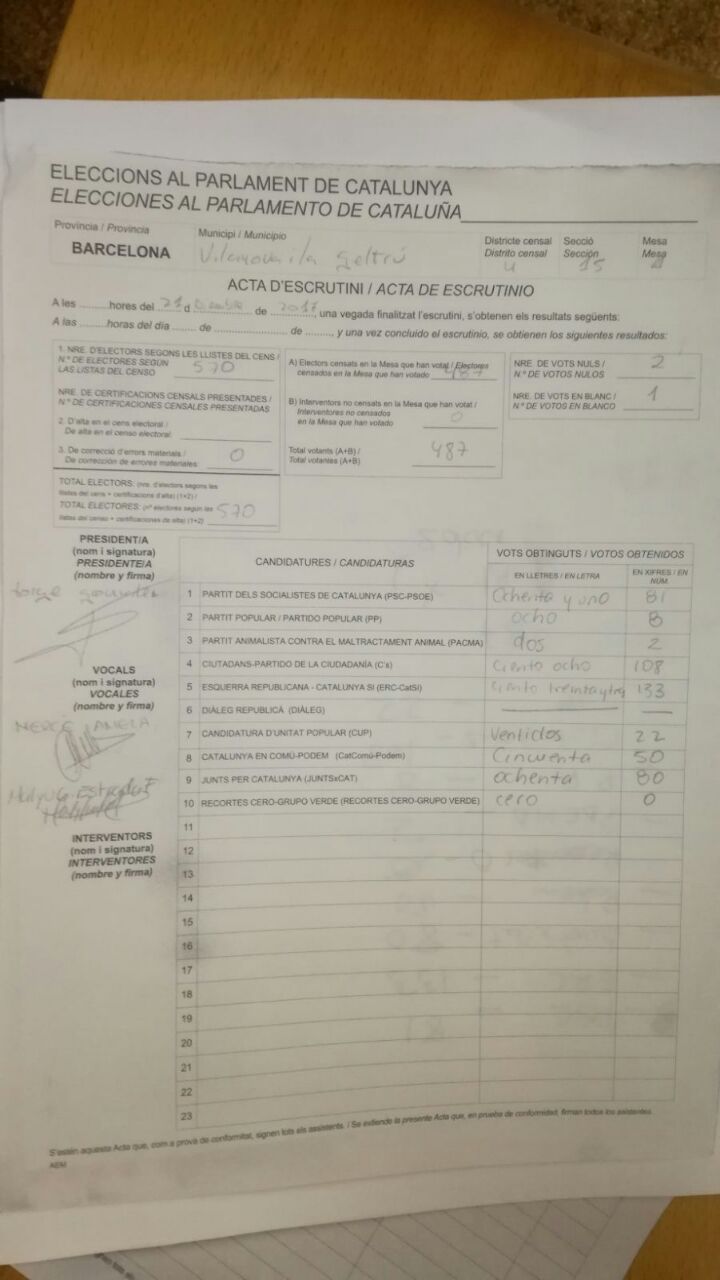 ELECCIONS AL PARLAMENT DE CATALUNYA
ELECCIONES AL PARLAMENTO DE CATALUÑA
Provincia / Provincia
BARCELONA
Municipi / Municipio
Vilanova i la Geltrú
Districte censal
Distrito censal
4
Secció
Sección
15
Mesa
Mesa
ACTA D'ESCRUTINI / ACTA DE ESCRUTINIO
A les ..........hores del 21 d de 2017, una vegada finalitzat l'escrutini, s'obtenen els resultats següents:
A las .........horas del día ........ de ........................ de ........, y una vez concluido el escrutinio, se obtienen los siguientes resultados:
1. NRE. D'ELECTORS SEGONS LES LLISTES DEL CENS /
N.º DE ELECTORES SEGÚN
LAS LISTAS DEL CENSO
570
NRE. DE CERTIFICACIONS CENSALS PRESENTADES /
N.º DE CERTIFICACIONES CENSALES PRESENTADAS
2. D'alta en el cens electoral /
De alta en el censo electoral:
3. De correcció d'errors materials /
De corrección de errores materiales:
0
TOTAL ELECTORS: (nre. d'electors segons les
llistes del cens + certificacions d'alta) (1+2) /
TOTAL ELECTORES: (nº electores según las
listas del censo + certificaciones de alta) (1+2)
570
A) Electors censats en la Mesa que han votat / Electores
censados en la Mesa que han votado
487
B) Interventors no censats en la Mesa que han votat /
Interventores no censados
en la Mesa que han votado
0
Total votants (A+B) /
Total votantes (A+B)
487
NRE. DE VOTS NULS /
N.º DE VOTOS NULOS
2
NRE. DE VOTS EN BLANC /
N.º DE VOTOS EN BLANCO
1
PRESIDENT/A
(nom i signatura)
PRESIDENTE/A
(nombre y firma)
Jorge
VOCALS
(nom i signatura)
VOCALES
(nombre y firma)
MERCÈ
INTERVENTORS
(nom i signatura)
INTERVENTORES
(nombre y firma)
CANDIDATURES / CANDIDATURAS
VOTS OBTINGUTS / VOTOS OBTENIDOS
EN LLETRES / EN LETRA
EN XIFRES / EN NÚM.
1 PARTIT DELS SOCIALISTES DE CATALUNYA (PSC-PSOE) Ochenta y uno 81
2 PARTIT POPULAR / PARTIDO POPULAR (PP) ocho 8
3 PARTIT ANIMALISTA CONTRA EL MALTRACTAMENT ANIMAL (PACMA) dos 2
4 CIUTADANS-PARTIDO DE LA CIUDADANÍA (C's) Ciento ocho 108
5 ESQUERRA REPUBLICANA - CATALUNYA SÍ (ERC-CatSí) 133
6 DIÀLEG REPUBLICÀ (DIÀLEG)
7 CANDIDATURA D'UNITAT POPULAR (CUP) Ventidos 22
8 CATALUNYA EN COMÚ-PODEM (CatComú-Podem) Cincuenta 50
9 JUNTS PER CATALUNYA (JUNTSxCAT) ochenta 80
10 RECORTES CERO-GRUPO VERDE (RECORTES CERO-GRUPO VERDE) cero 0
11
12
13
14
15
16
17
18
19
20
21
22
23
S'estén aquesta Acta que, com a prova de conformitat, signen tots els assistents. / Se extiende la presente Acta que, en prueba de conformidad, firman todos los asistentes.
AEM